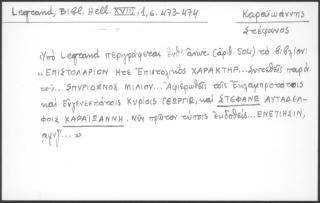 Legrand, Bibl. Hell. XVIII, 1, σ. 473-474
Καραϊωάννης
Στέφανος
Ὑπὸ Legrand περιγράφεται (ἀριθ. 504) τὸ βιβλίον:
"ΕΠΙΣΤΟΛΑΡΙΟΝ ΗΤΕ Ἐπιστολικὸς ΧΑΡΑΚΤΗΡ... Συντεθεὶς παρὰ
τοῦ... ΣΠΥΡΙΔΩΝΟΣ ΜΙΛΙΟΥ... Ἀφιερωθεὶς τοῖς Ἐνλαμπροτάτοις
καὶ Εὐγενεστάτοις Κυρίοις ΓΕΩΡΓΙΩ, καὶ ΣΤΕΦΑΝΩ ΑΥΤΑΔΕΛ-
ΦΟΙΣ ΚΑΡΑΪΩΑΝΝΗ. Νῦν πρῶτον τύποις ἐκδοθείς... ΕΝΕΤΙΗΣΙΝ,